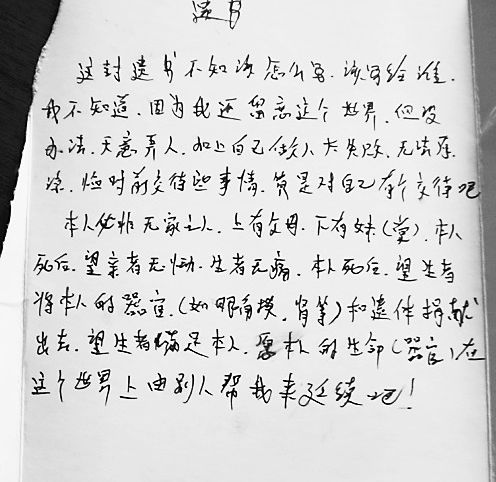 遗书
这封遗书不知该怎么写，该写给谁，
我不知道，因为我还留恋这个世界，但没
办法，天意弄人，加上自己做人太失败，无法原
谅，临时前交待些事情，算是对自己有个交待吧
本人并非无家之人，上有父母，下有妹（堂），本人
死后，望亲者无恸，生者无痛，本人死后，望生者
将本人的器官，（如眼角膜，肾等）和遗体捐献
出去，望生者满足本人，愿本人的生命（器官）在
这个世界上由别人帮我来延续吧！